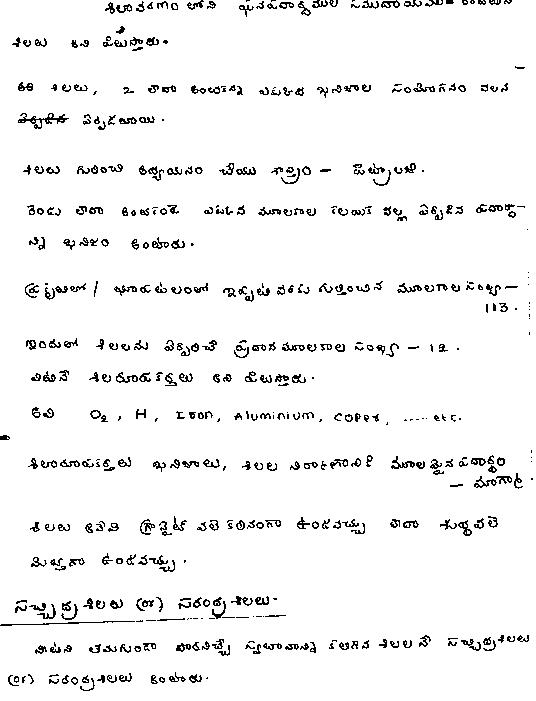 శిలావరణం లోని ఘనపదార్థముల సముదాయమును
శిలలు అని పిలుస్తారు.
ఈ శిలలు, 2 లేదా అంతకన్నా ఎక్కువ ఖనిజాల సంయోగనం వలన
ఏర్పడతాయి.
శిలలు గురించి అధ్యయనం చేయు శాస్త్రం - పెట్రాలజి.
రెండు లేదా అంతకంటే ఎక్కువ మూలకాల కలయిక వల్ల ఏర్పడిన పదార్థా-
న్ని ఖనిజం అంటారు.
ప్రకృతిలో / భూపటలంలో ఇప్పటి వరకు గుర్తించిన మూలకాల సంఖ్య -
113.
ఇందులో శిలలను ఏర్పరిచే ప్రధాన మూలకాల సంఖ్య - 12.
వీటినే శిలారూపకర్తలు అని పిలుస్తారు.
అవి O₂, H, Iron, Aluminium, Copper, ..... etc.
శిలారూపకర్తలు ఖనిజాలు, శిలల నిర్మాణానికి మూలమైన పదార్థం
- మాగ్మా.
శిలలు అనేవి గ్రానైట్ వలె కఠినంగా ఉండవచ్చు లేదా సుద్దవలె
మెత్తగా ఉండవచ్చు.
సచ్ఛిద్ర శిలలు (or) సరంధ్ర శిలలు.
నీటిని తమగుండా పోనిచ్చే స్వభావాన్ని కలిగిన శిలలనే సచ్ఛిద్ర శిలలు
(or) సరంధ్ర శిలలు అంటారు.